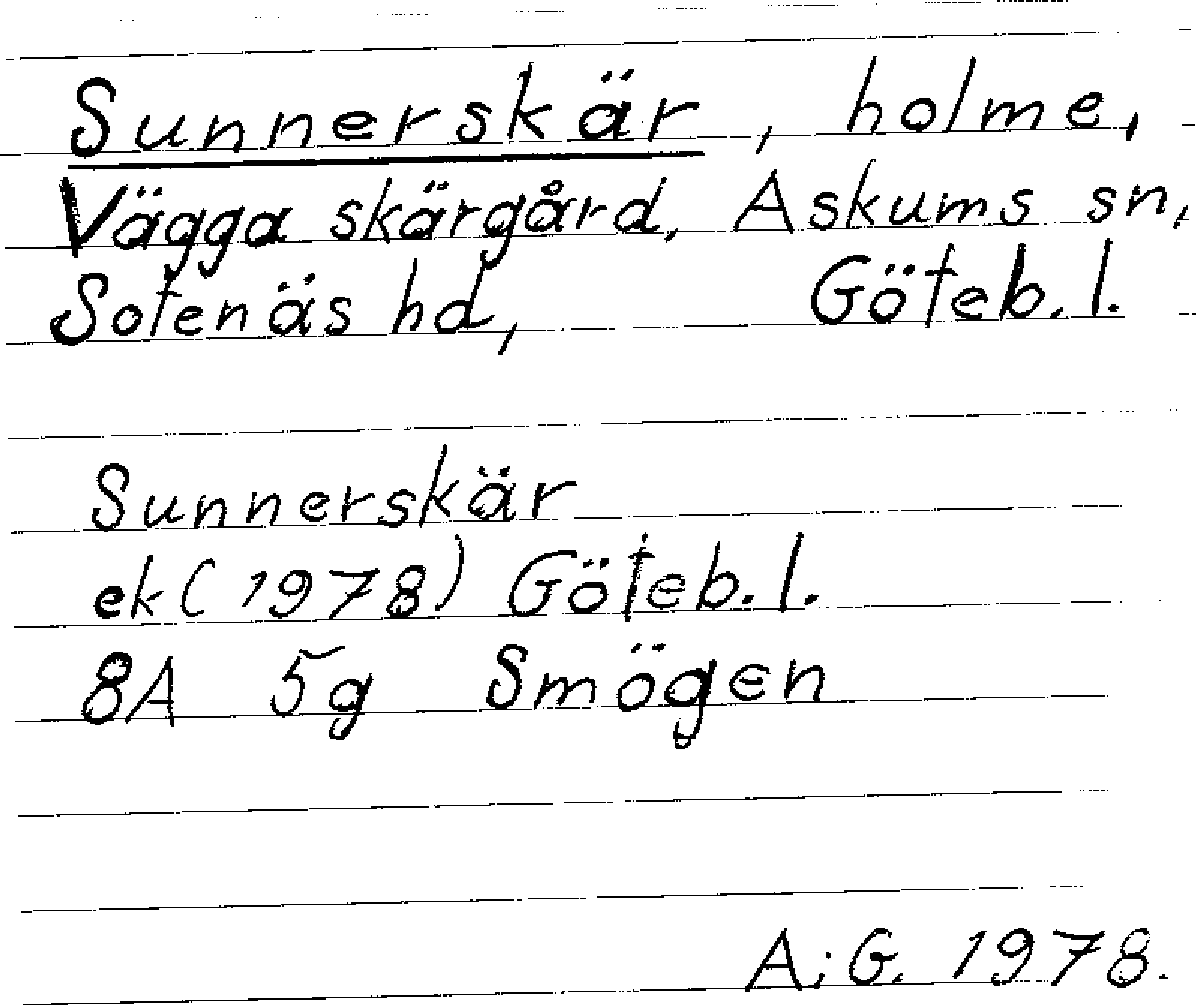 Sunnerskär, holme,
Vägga skärgård, Askums sn,
Sotenäs hd, Göteb. l.
Sunnerskär
ek (1978) Göteb. l.
8A 5g Smögen
A.G. 1978.